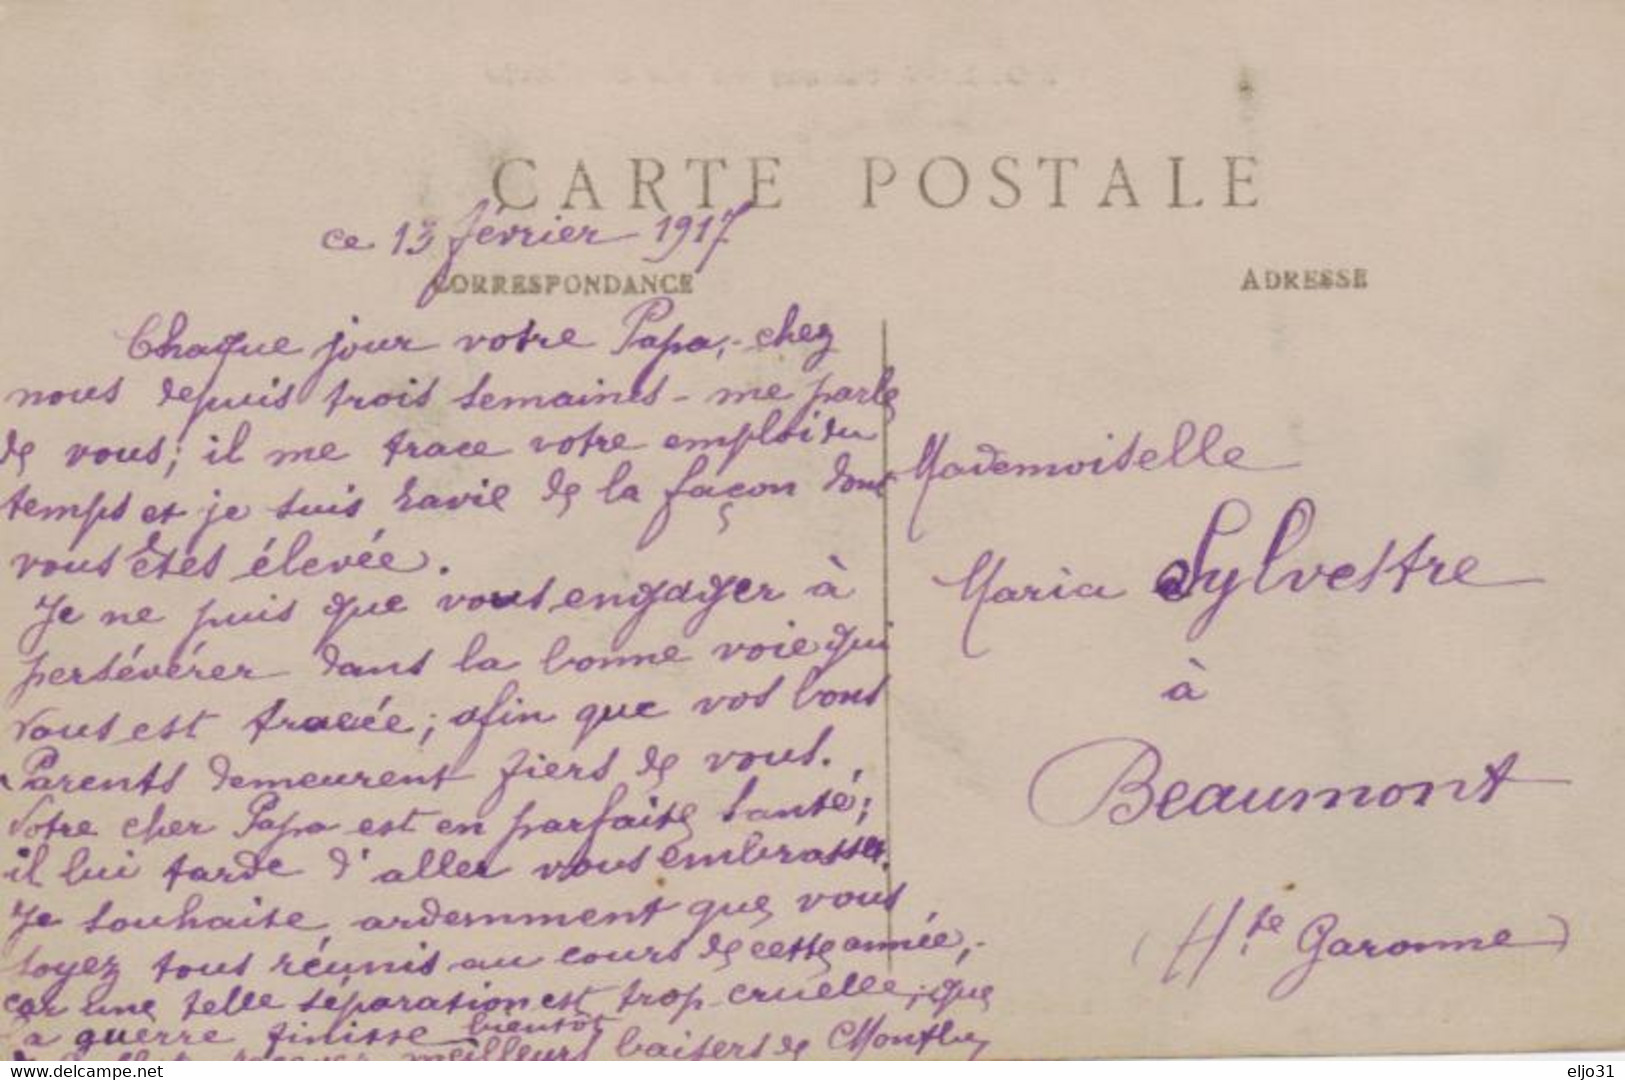 CARTE POSTALE
ce 13 février 1917
CORRESPONDANCE
ADRESSE
Chaque jour votre Papa, - chez
nous depuis trois semaines - me parle
de vous; il me trace votre emploi du
temps et je suis ravie de la façon dont
vous êtes élevée.
Je ne puis que vous engager à
persévérer dans la bonne voie qui
vous est tracée; afin que vos bons
Parents demeurent fiers de vous.
Votre cher Papa est en parfaite santé;
il lui tarde d'aller vous embrasser.
Je souhaite ardemment que vous
soyez tous réunis au cours de cette année,
car une telle séparation est trop cruelle; que
la guerre finisse bientôt
recevez meilleurs baisers de
Mademoiselle
Maria Sylvestre
à
Beaumont
(Hte Garonne)
delcampe.net
eljo31